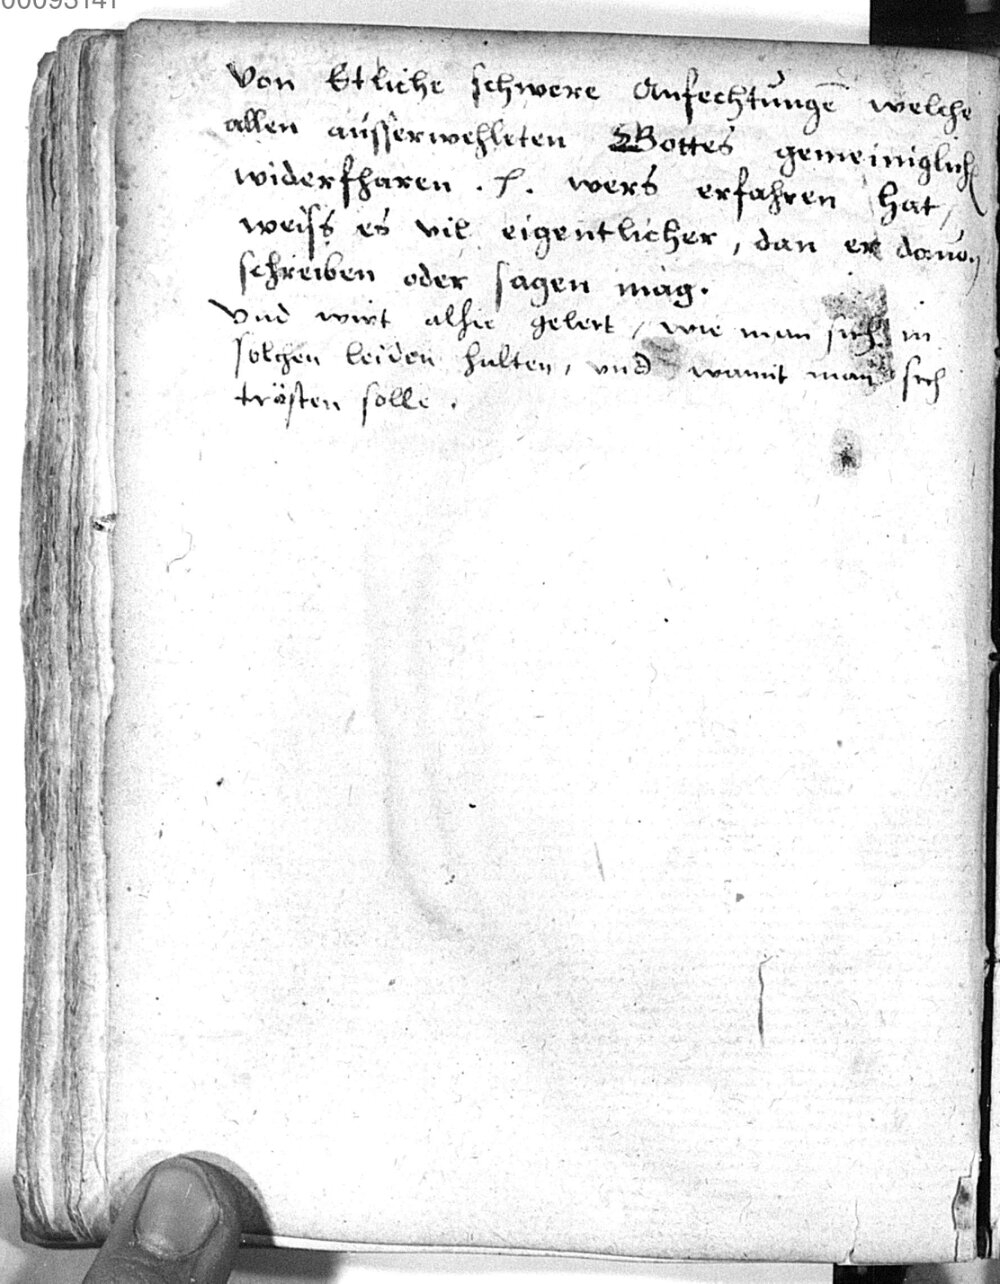 00093141
Von Etliche schwere Anfechtungē welche
allen ausserwehleten Gottes gemeiniglich
widerfharen . wers erfahren hat,
weiss es vil eigentlicher, dan er
schreiben oder sagen mag.
Vnd wirt alhie gelert, wie man sich in
solchen leiden halten, vnd wamit man sich
trösten solle.